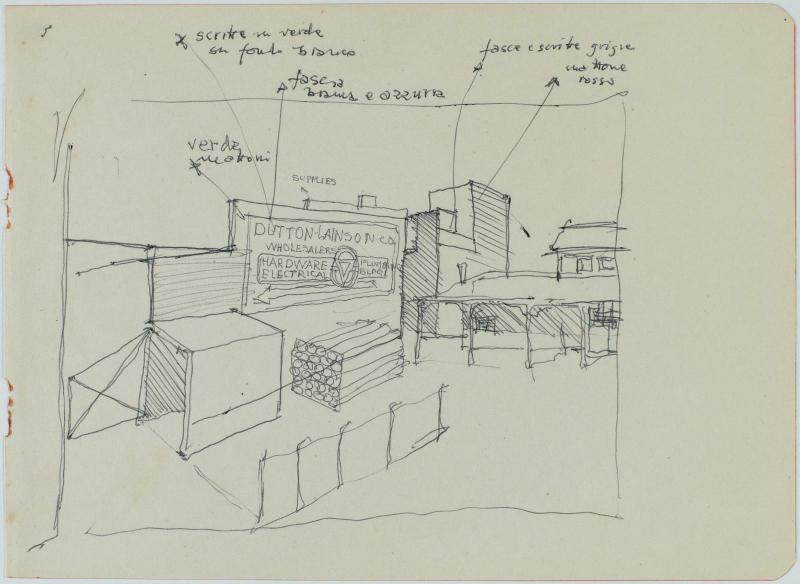 scritte in verde
su fondo bianco
fascia
bianca e azzurra
fasce e scritte grigie
mattone
rosso
verde
mattoni
SUPPLIES
DUTTON-LAINSON CO.
WHOLESALERS
HARDWARE
ELECTRICAL
PLUMBING
BLDG